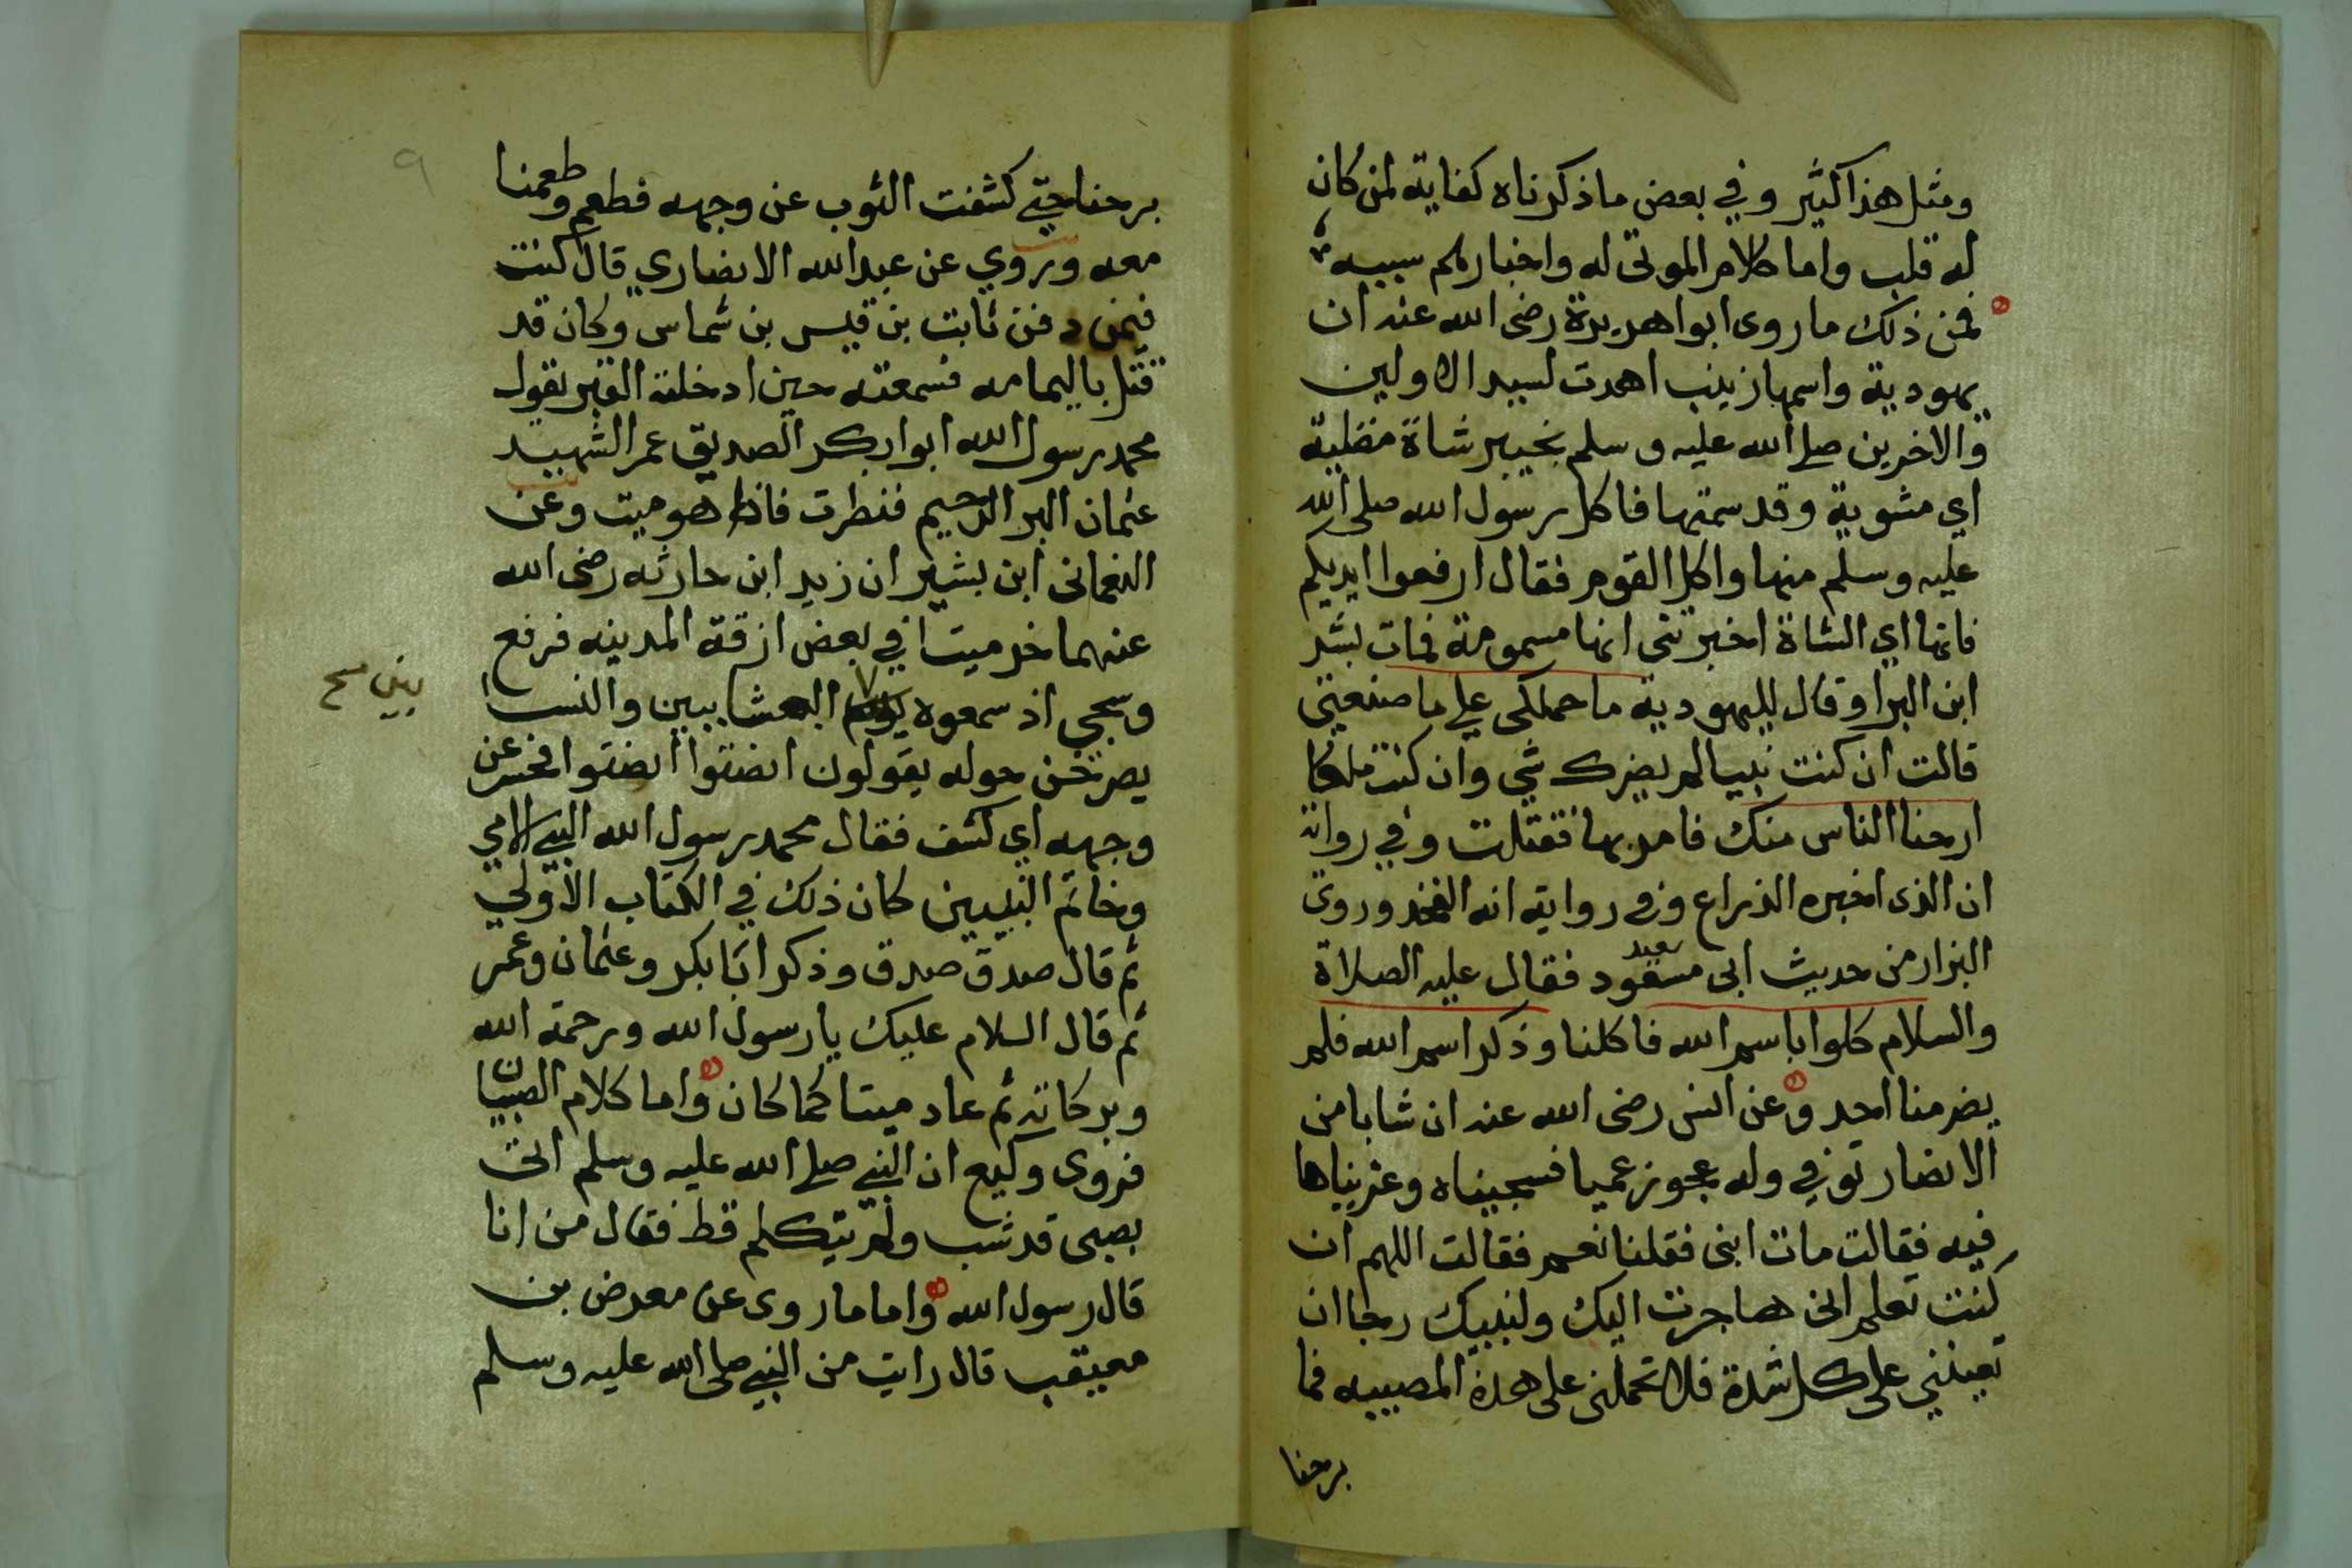 ومثل هذا كثير وفي بعض ما ذكرناه كفاية لمن كان
له قلب واما كلام الموتى له واخبارهم سببه
فمن ذلك ما روى ابوا هريرة رضى الله عنه ان
يهودية واسمها زينب اهدت لسيد الاولين
والاخرين صلى الله عليه وسلم بخيبر شاة مضلية
اي مشوية وقد سمتها فاكل رسول الله صلى الله
عليه وسلم منها واكل القوم فقال ارفعوا ايديكم
فانها اي الشاة اخبرتنى انها مسمومة فمات بشر
ابن البرا وقال لليهودية ما حملكى على ما صنعيتي
قالت ان كنت نبيا لم يضرك شي وان كنت ملكا
ارحنا الناس منك فامر بها فقتلت وفي رواية
ان الذى اخبره الذراع وفى رواية انه الفخذ وروى
البزار من حديث ابى مسعود سعيد فقال عليه الصلاة
والسلام كلوا باسم الله فاكلنا وذكر اسم الله فلم
يضر منا احد وعن انس رضى الله عنه ان شابا من
الانصار توفي وله عجوز عميا فسجيناه وعزيناها
فيه فقالت مات ابنى فقلنا نعم فقالت اللهم ان
كنت تعلم انى هاجرت اليك ولنبيك رجا ان
تعينني على كل شدة فلا تحملنى على هذة المصيبه فما
برحنا
٩
برحنا حتى كشفت الثوب عن وجهه فطعم وطعمنا
معه وروي عن عبد الله الانصاري قال كنت
فيمن دفن ثابت بن قيس بن شماس وكان قد
قتل باليمامه فسمعته حين ادخلته القبر يقول
محمد رسول الله ابوا بكر الصديق عمر الشهيد
عثمان البر الرحيم فنظرت فاذا هو ميت وعن
النعمانى ابن بشير ان زيد ابن حارثه رضى الله
عنهما خر ميتا في بعض ازقة المدينه فرفع
وسجي اذ سمعوه العشا بين والنسا
بين صح
يصرخن حوله يقولون انصتوا انصتوا فحسر عن
وجهه اي كشف فقال محمد رسول الله النبي الامي
وخاتم النبيين كان ذلك في الكتاب الاولي
ثم قال صدق صدق وذكر ابا بكر وعثمان وعمر
ثم قال السلام عليك يا رسول الله ورحمة الله
وبركاته ثم عاد ميتا كما كان واما كلام الصبيان
فروى وكيع ان النبي صلى الله عليه وسلم اتى
بصبى قد شب ولم يتكلم قط فقال من انا
قال رسول الله واما ما روى عن معرض بن
معيقب قال رايت من النبي صلى الله عليه وسلم